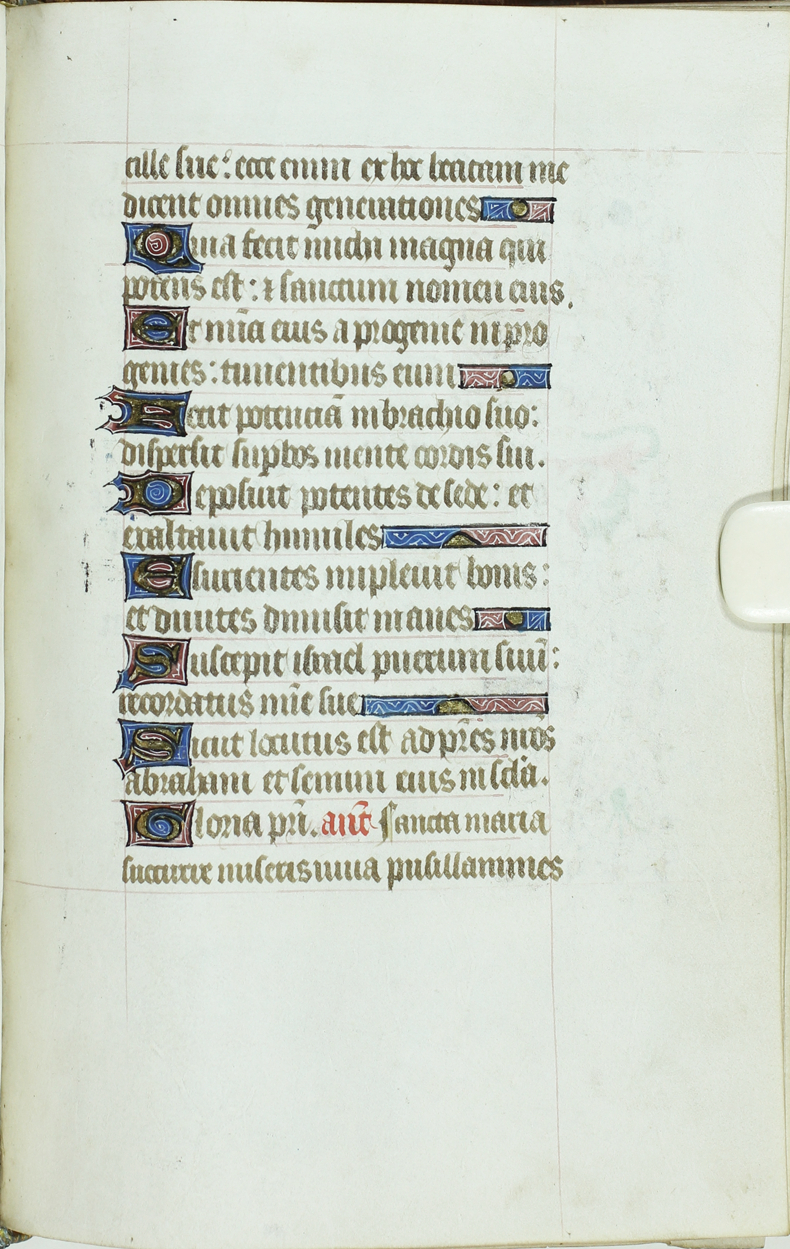 cille sue: ecce enim ex hoc beatam me
dicent omnes generationes
Quia fecit michi magna qui
potens est: ⁊ sanctum nomen eius.
Et mīa eius a progenie in pro
genies: timentibus eum
Fecit potenciā in brachio suo:
dispersit supbos mente cordis sui.
Deposuit potentes de sede: et
exaltauit humiles
Esurientes impleuit bonis:
et diuites dimisit inanes
Suscepit israel puerum suū:
recordatus mīe sue
Sicut locutus est ad pr̄es nr̄os
abraham et semini eius in scl̄a.
Gloria pr̄i. an̄t Sancta maria
succurre miseris iuua pusillanimes